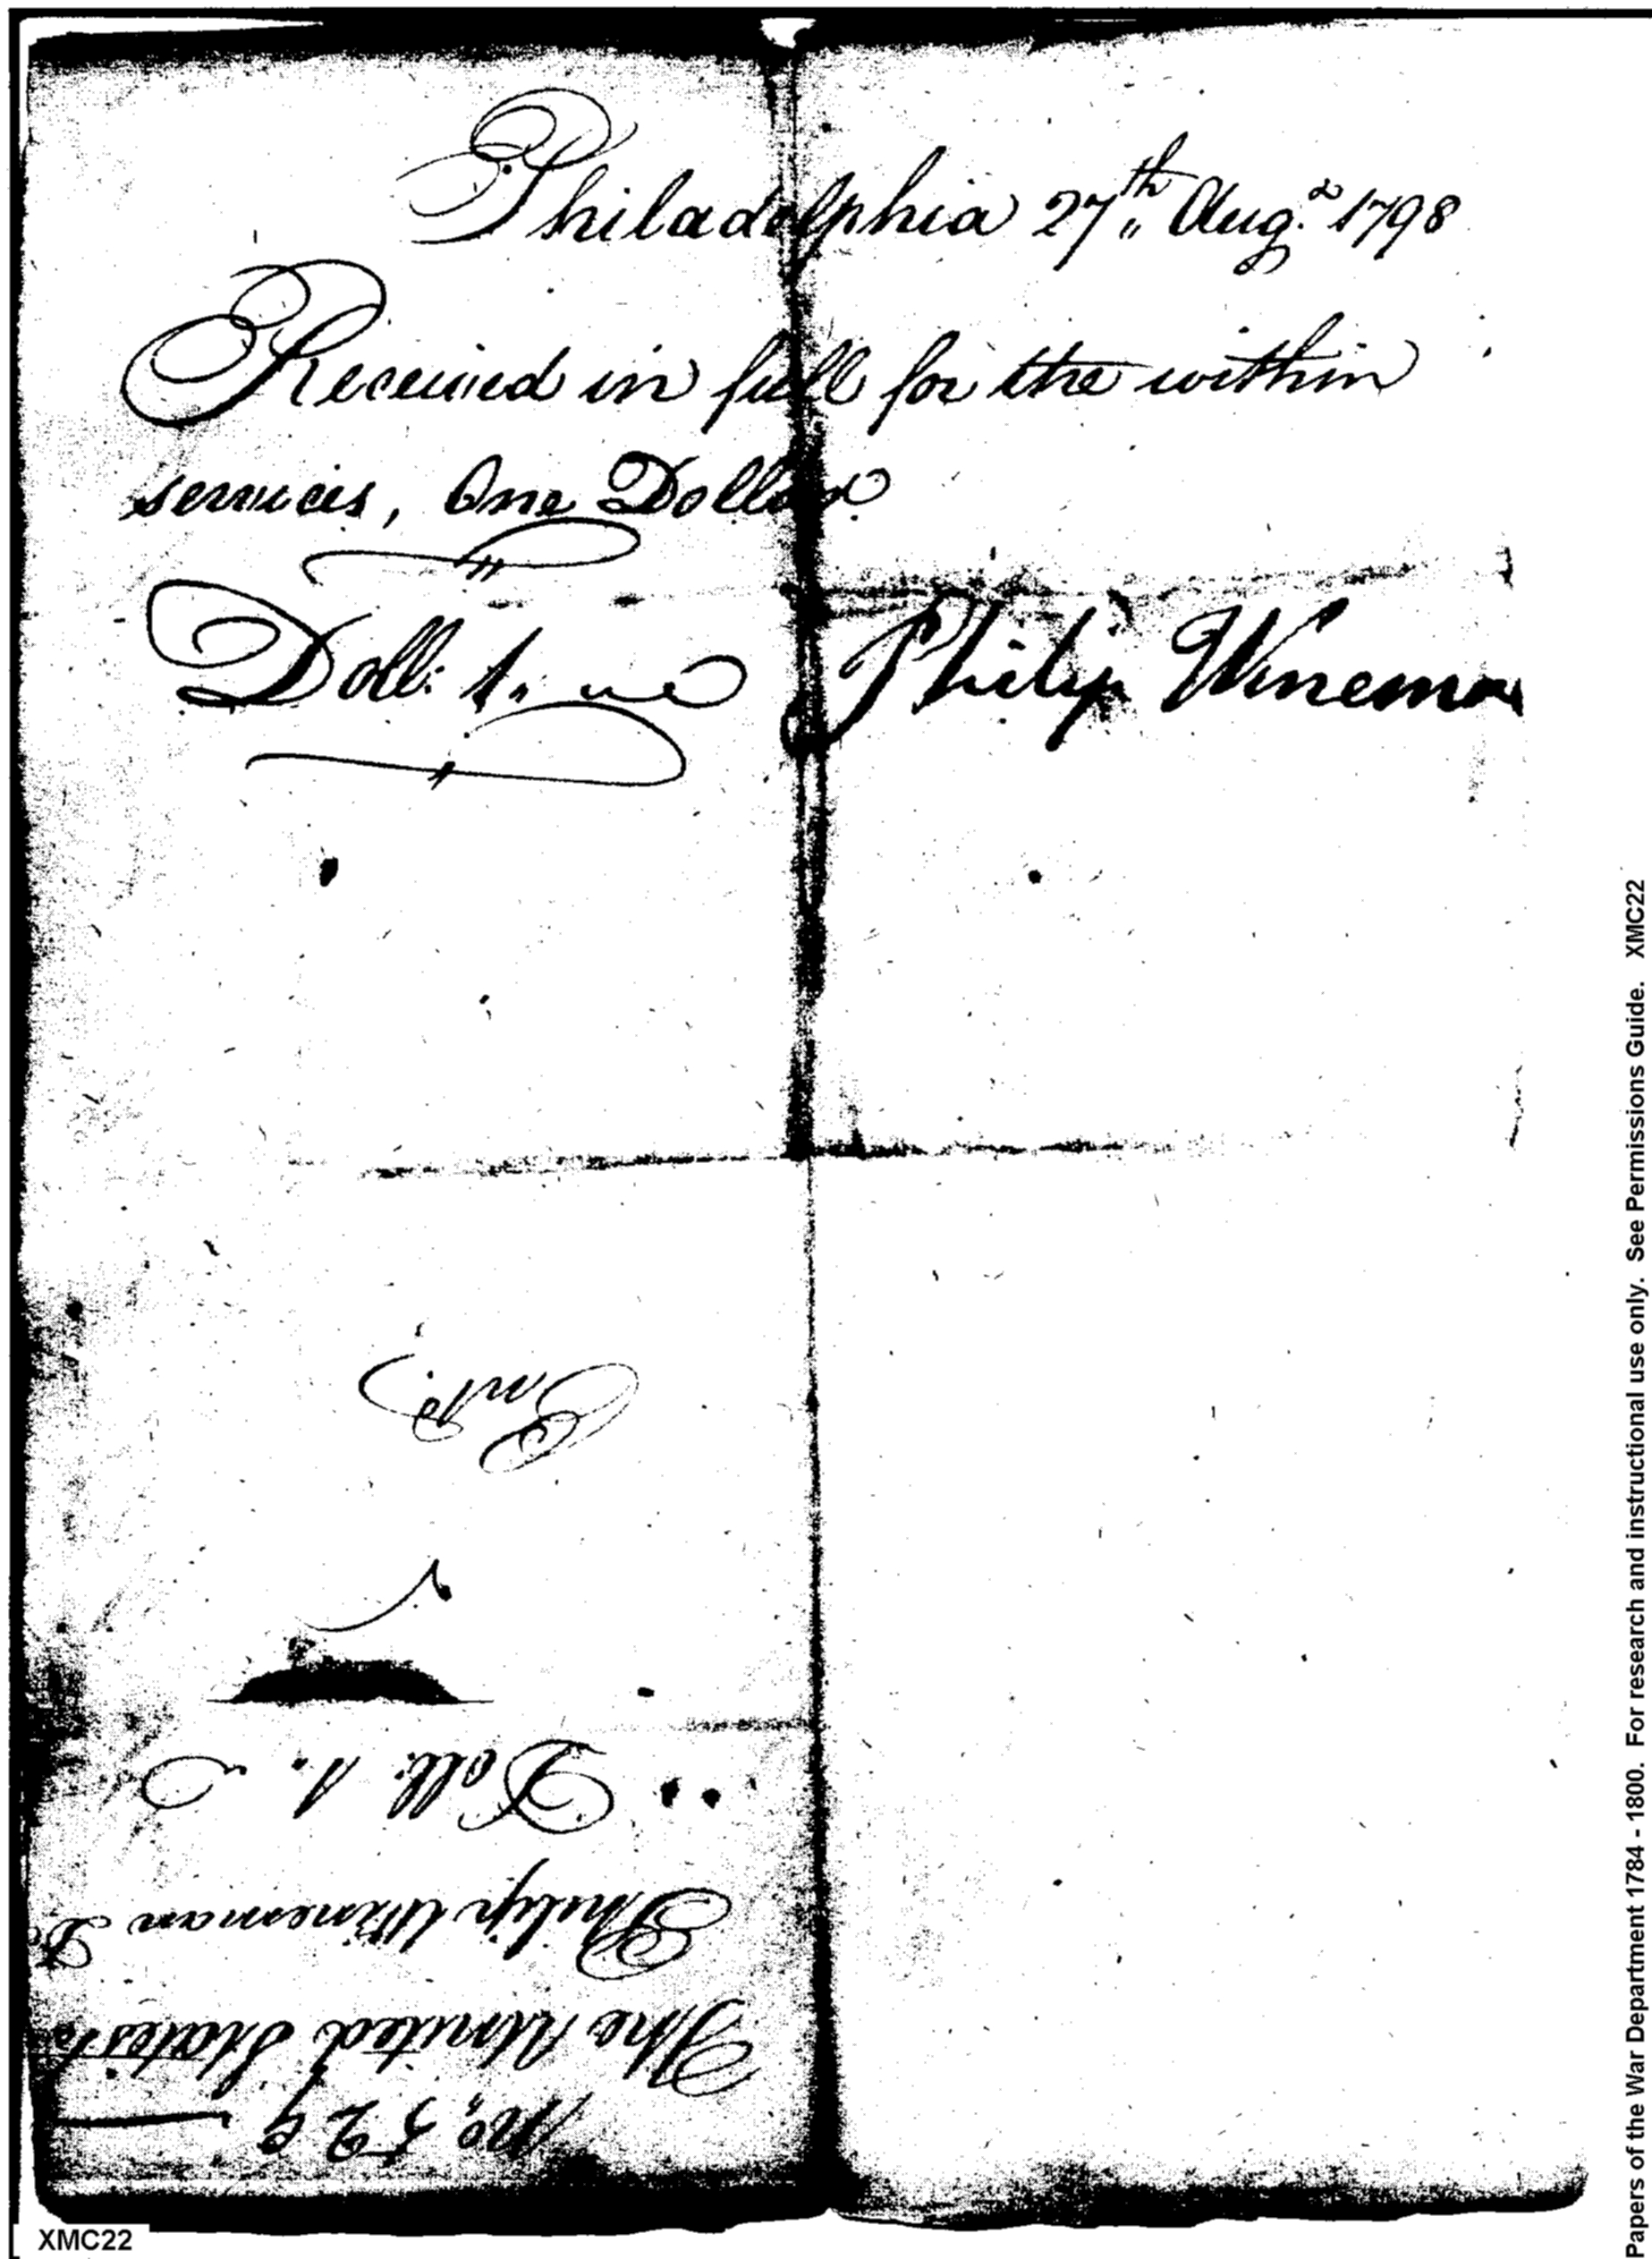 Philadelphia 27th Aug.t 1798
Received in full for the within
services, One Dollar
Doll: 1.
Philip Wineman
No, 529
The United States to
Philip Wineman Dr
Doll: 1.
Entd.
XMC22
Papers of the War Department 1784 - 1800. For research and instructional use only. See Permissions Guide. XMC22